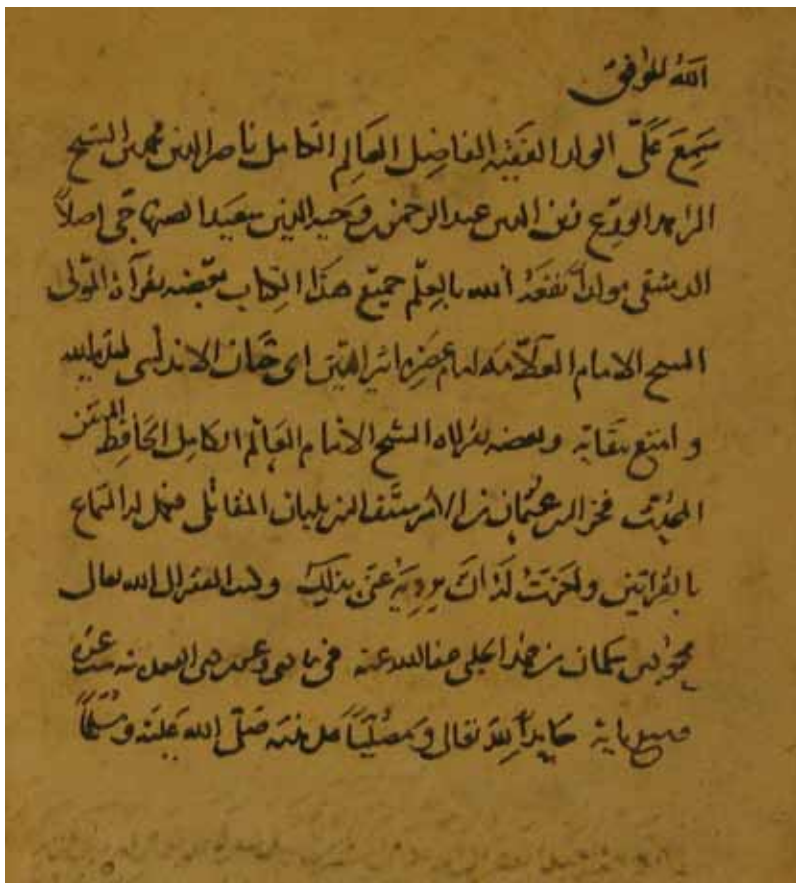 الله الموفق
سَمِعَ عَلَيَّ الولد الفقيه الفاضِل العَالِم الكامل ناصر الدين محمد بن الشيخ
الزاهد الورع زين الدين عبد الرحمن بن وحيد الدين سعيد الصنهاجي اصلاً
الدمشقي مولداً نفعَهُ الله بالعِلم جميع هذا الكتاب بعضه بقرآة المولى
الشيخ الامام العلاّمه امام عصره اثير الدين ابي حيان الاندلسي
و امتع ببقايه وبعضه بقراة الشيخ الامام العالم الكامل الحافِظ المتقن
المحدث فخر الدين عثمان بن بلبان المقاتلي فكمل له السماع
بالقراتين واجزت لَهُ ان يرويَهُ عني بذلك وكتب الفقير الى الله تعالى
محمود بن سلمان بن فهد الحلبي عفا الله عنه في
وسبع ماية حامِداً لله تعالى ومصلّياً على نبيه صَلَّى الله عَلَيْه ومُسَلِّماً